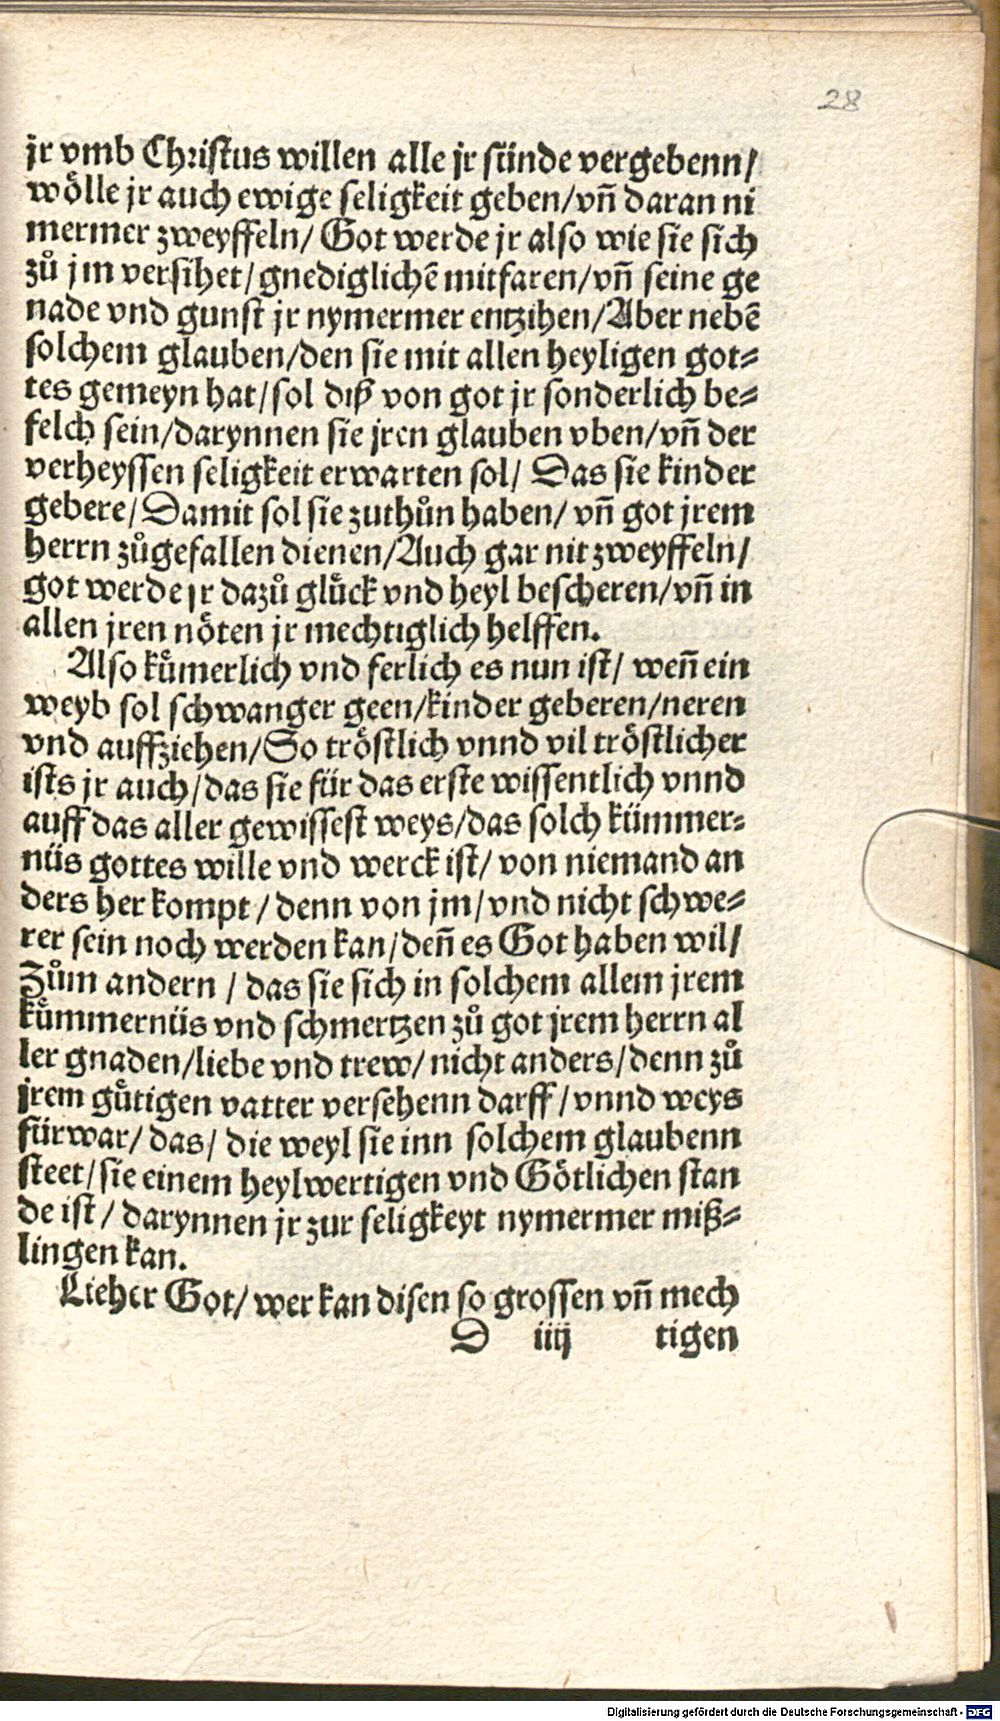 28
jr vmb Christus willen alle jr sünde vergebenn/
wölle jr auch ewige seligkeit geben/vn̄ daran ni
mermer zweyffeln/ Got werde jr also wie sie sich
zů jm versihet/gnediglichē mitfaren/vn̄ seine ge
nade vnd gunst jr nymermer entzihen/Aber nebē
solchem glauben/den sie mit allen heyligen got⸗
tes gemeyn hat/sol diß von got jr sonderlich be⸗
felch sein/darynnen sie jren glauben vben/vn̄ der
verheyssen seligkeit erwarten sol/ Das sie kinder
gebere/Damit sol sie zuthůn haben/ vn̄ got jrem
herrn zůgefallen dienen/Auch gar nit zweyffeln/
got werde jr dazů glück vnd heyl bescheren/vn̄ in
allen jren nöten jr mechtiglich helffen.
Also kümerlich vnd ferlich es nun ist/ wen̄ ein
weyb sol schwanger geen/kinder geberen/neren
vnd auffziehen/So tröstlich vnnd vil tröstlicher
ists jr auch/das sie für das erste wissentlich vnnd
auff das aller gewissest weys/das solch kümmer⸗
nüs gottes wille vnd werck ist/ von niemand an
ders her kompt/ denn von jm/vnd nicht schwe⸗
rer sein noch werden kan/den̄ es Got haben wil/
Zům andern / das sie sich in solchem allem jrem
kümmernüs vnd schmertzen zů got jrem herrn al
ler gnaden/liebe vnd trew/ nicht anders/denn zů
jrem gütigen vatter versehenn darff/vnnd weys
fürwar/ das/ die weyl sie inn solchem glaubenn
steet/sie einem heylwertigen vnd Götlichen stan
de ist/ darynnen jr zur seligkeyt nymermer miß⸗
lingen kan.
Lieber Got/ wer kan disen so grossen vn̄ mech
D iiij tigen
Digitalisierung gefördert durch die Deutsche Forschungsgemeinschaft - DFG